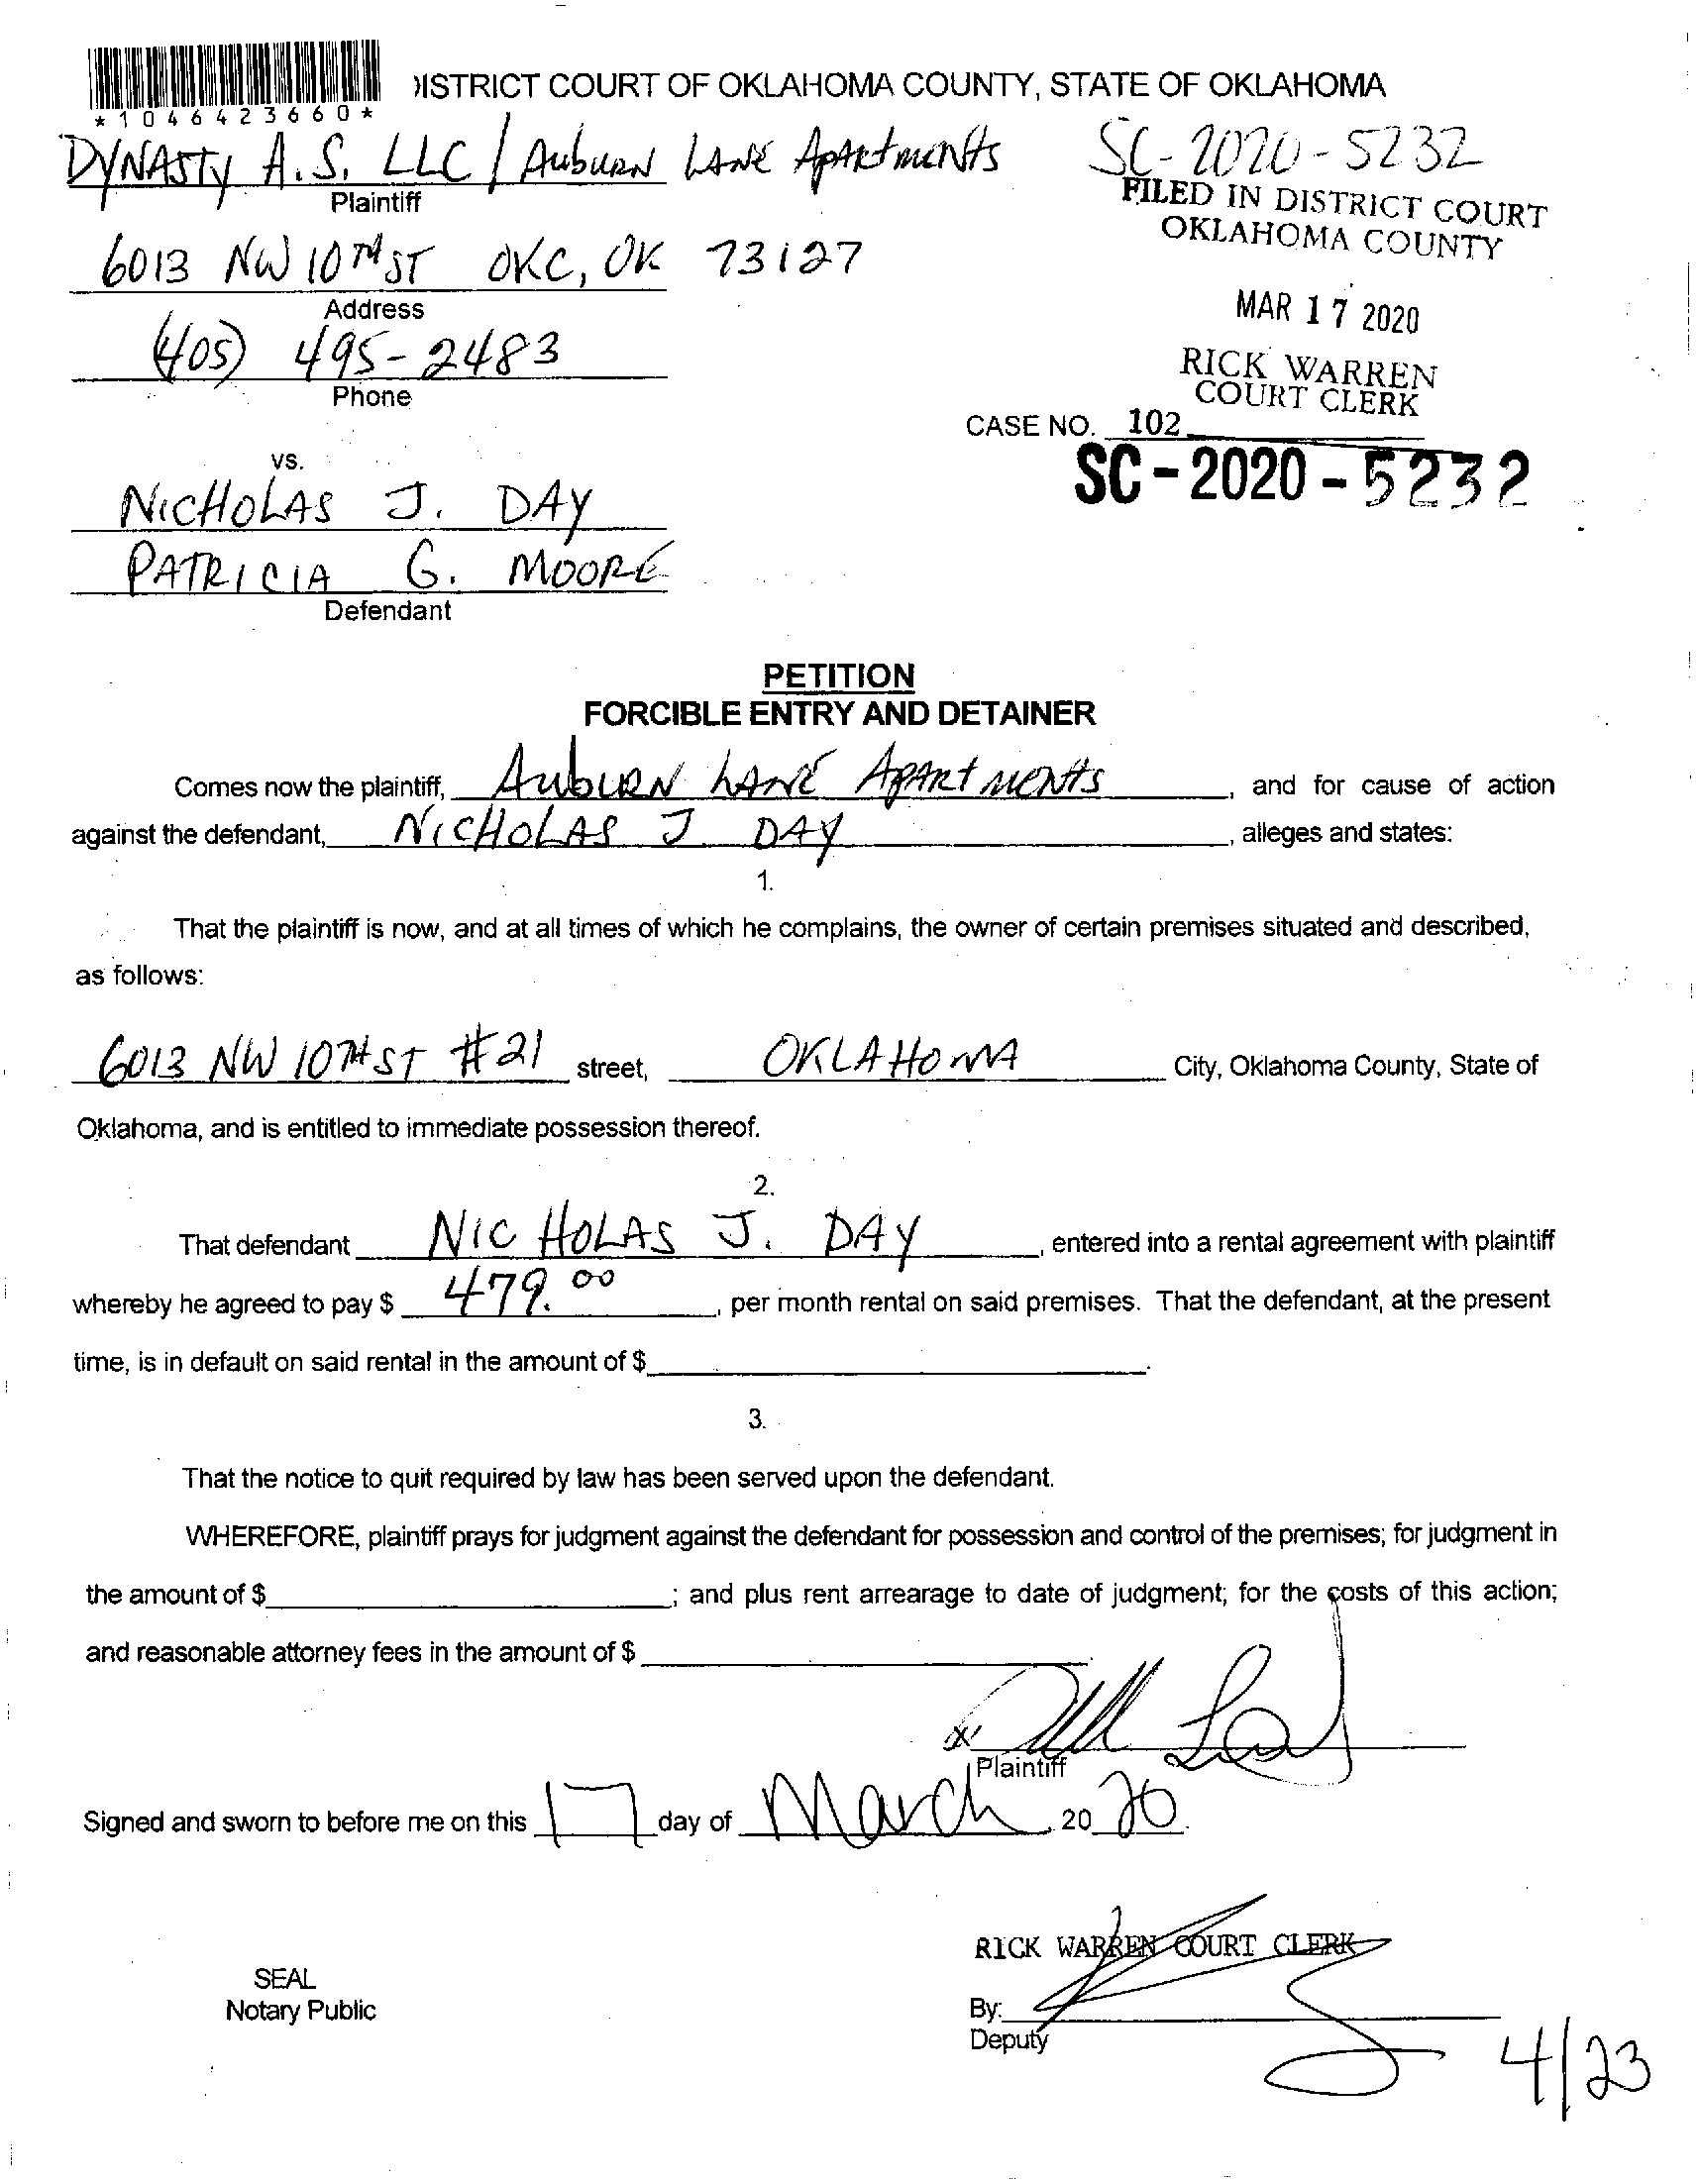 *1046423660*
DISTRICT COURT OF OKLAHOMA COUNTY, STATE OF OKLAHOMA
DYNASTY A.S. LLC / AuburN LANE ApARtmeNts
Plaintiff
SC-2020-5232
FILED IN DISTRICT COURT
OKLAHOMA COUNTY
6013 NW 10TH ST OKC, OK 73127
Address
MAR 17 2020
(405) 495-2483
Phone
RICK WARREN
COURT CLERK
CASE NO. 102
SC-2020-5232
vs.
NICHOLAS J. DAY
PATRICIA G. MOORE
Defendant
PETITION
FORCIBLE ENTRY AND DETAINER
Comes now the plaintiff, AubuRN LANE ApARtmeNts, and for cause of action
against the defendant, NICHOLAS J DAY, alleges and states:
1.
That the plaintiff is now, and at all times of which he complains, the owner of certain premises situated and described,
as follows:
6013 NW 10TH ST #21 street, OKLAHOMA City, Oklahoma County, State of
Oklahoma, and is entitled to immediate possession thereof.
2.
That defendant NICHOLAS J. DAY, entered into a rental agreement with plaintiff
whereby he agreed to pay $ 479.00, per month rental on said premises. That the defendant, at the present
time, is in default on said rental in the amount of $ .
3.
That the notice to quit required by law has been served upon the defendant.
WHEREFORE, plaintiff prays for judgment against the defendant for possession and control of the premises; for judgment in
the amount of $ ; and plus rent arrearage to date of judgment; for the costs of this action;
and reasonable attorney fees in the amount of $
x
Plaintiff
Signed and sworn to before me on this 17 day of March, 20 20.
RICK WARREN COURT CLERK
SEAL
Notary Public
By:
Deputy
4/23